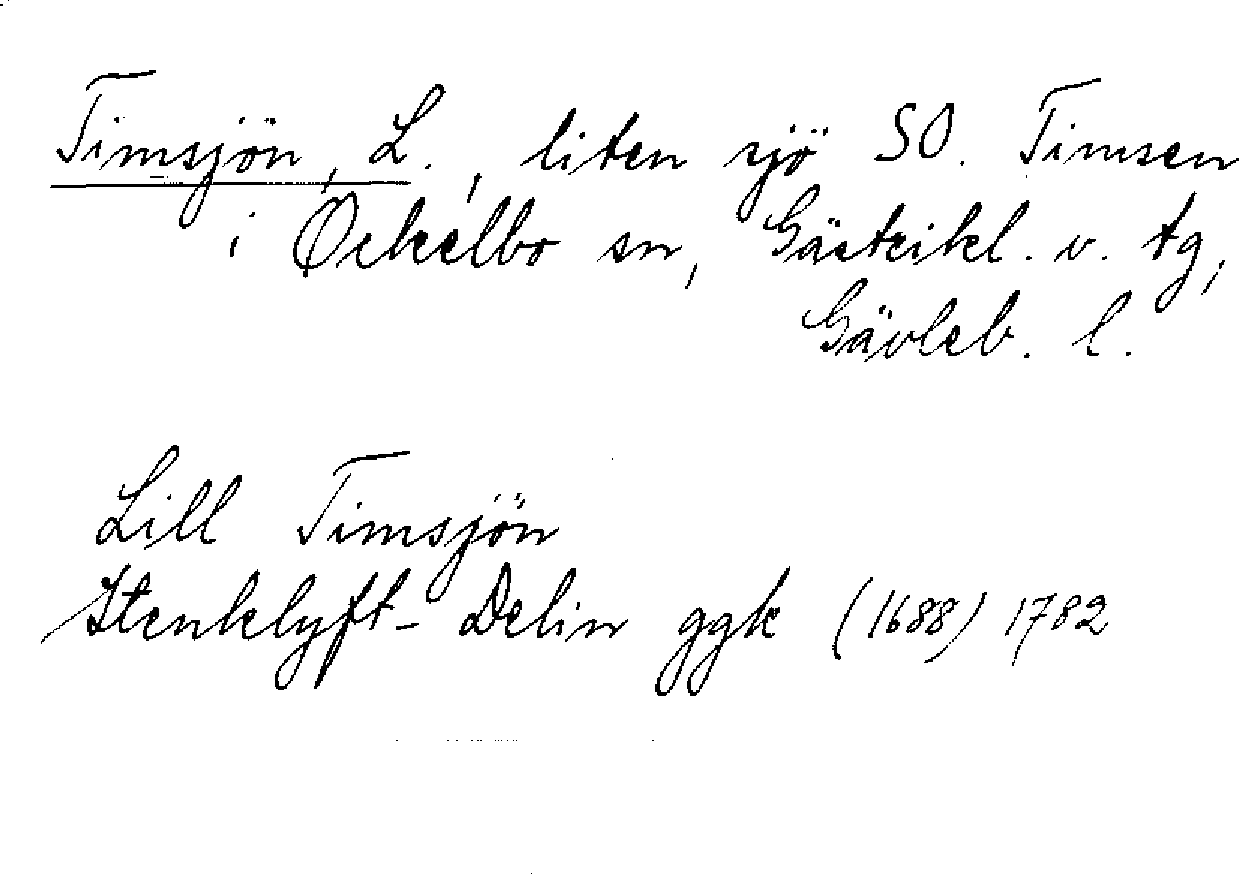 Timsjön, L., liten sjö SO. Timsen
i Ockelbo sn, Gästrikl. v. tg,
Gävleb. l.
Lill Timsjön
Stenklyft-Delin ggk (1688) 1782